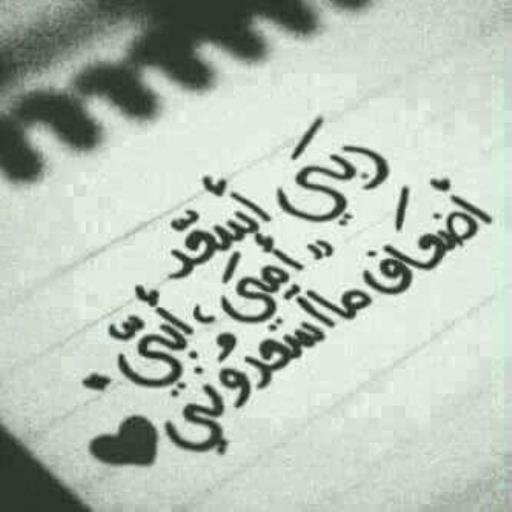 ربي أسعد
" أمي ، أبي "
أضعاف ما اسعدوني